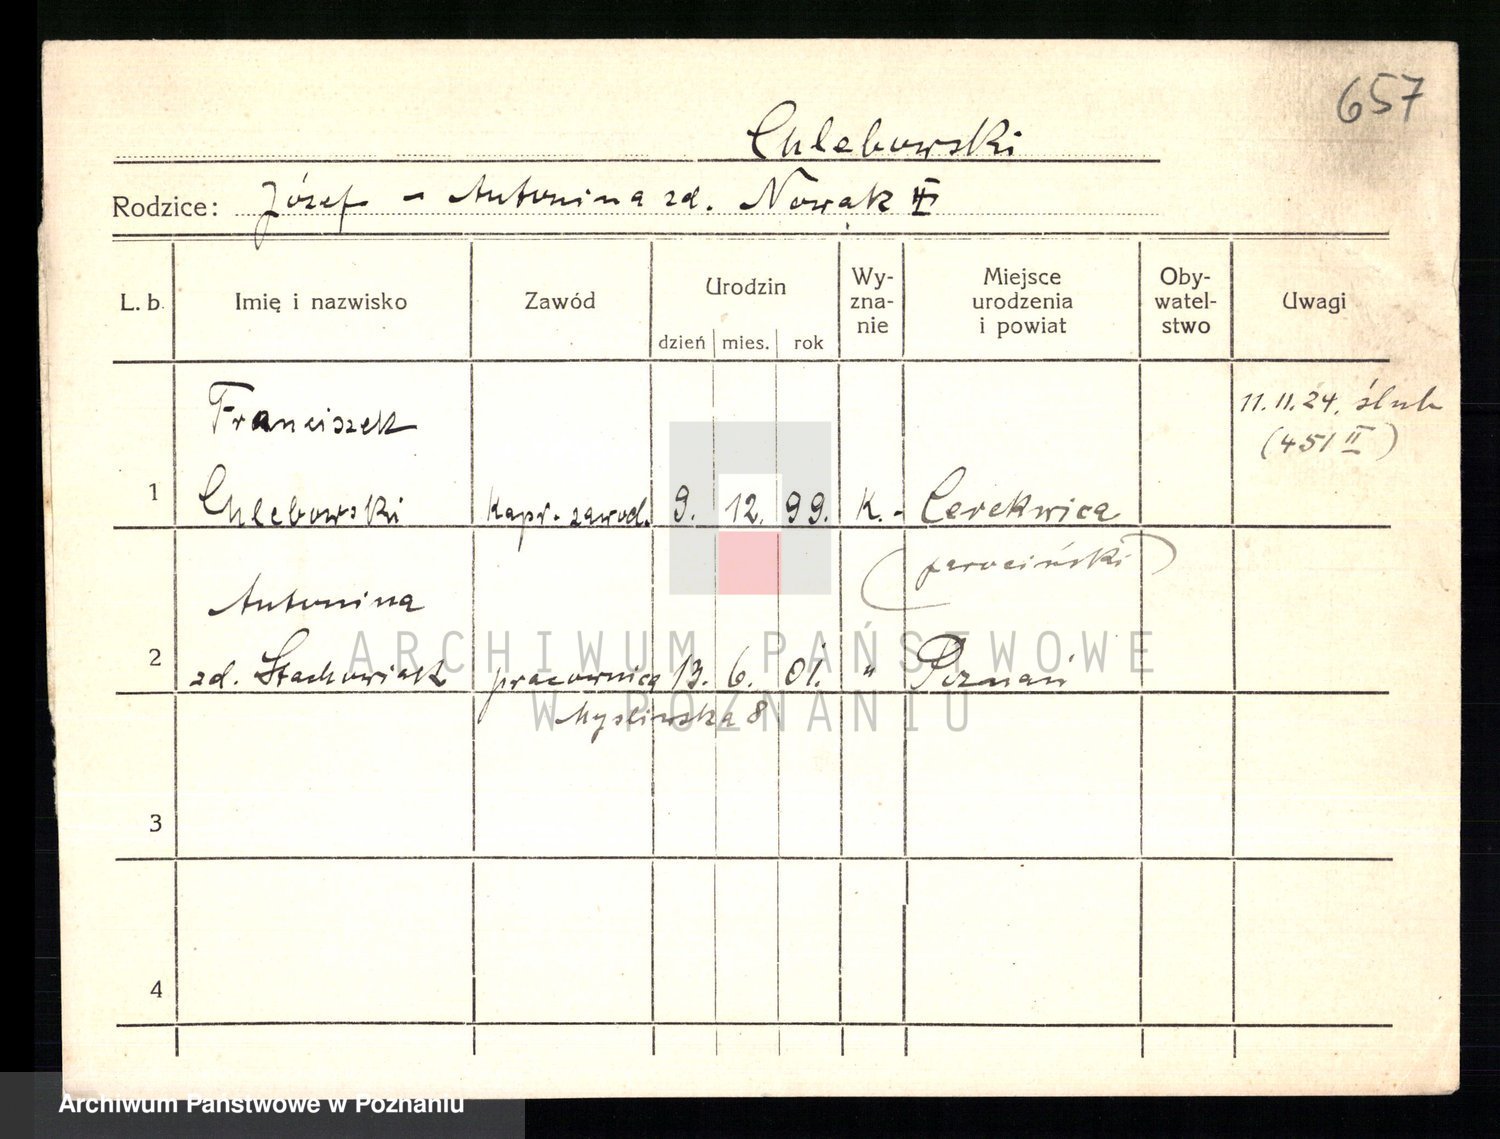 657
Chlebowski
Rodzice: Józef - Antonina zd. Nowak
L. b. Imię i nazwisko Zawód Urodzin dzień mies. rok Wy-zna-nie Miejsce urodzenia i powiat Oby-watel-stwo Uwagi
Franciszek 11. II. 24. ślub
(451 II)
1 Chlebowski kapr. zawod. 9. 12. 99. K. - Cerekwica
(jarociński)
Antonina
2 zd. Stachowiak pracownica 13. 6. 01. " Poznań
Myśliwska 8
3
4
ARCHIWUM PAŃSTWOWE
W POZNANIU
Archiwum Państwowe w Poznaniu